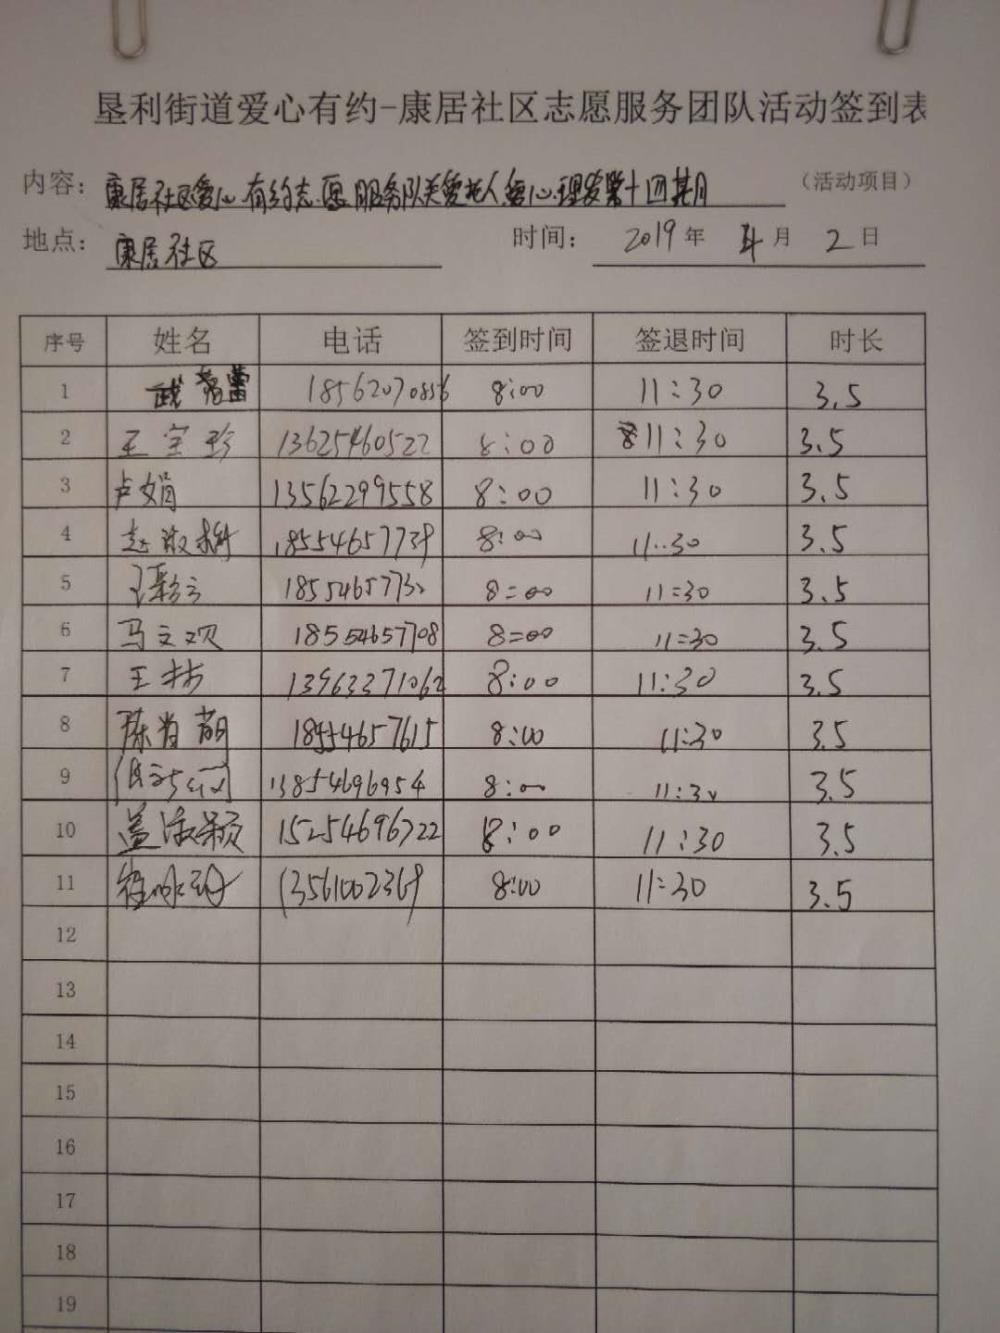 垦利街道爱心有约-康居社区志愿服务团队活动签到表
内容：康居社区爱心有约志愿服务队关爱老人爱心理发第十四期 （活动项目）
地点：康居社区 时间：2019年 4月 2日
序号 姓名 电话 签到时间 签退时间 时长
1 武 蕾 18562070856 8:00 11:30 3.5
2 王宝珍 13625460522 8:00 11:30 3.5
3 卢娟 13562299558 8:00 11:30 3.5
4 赵 18554657739 8:00 11:30 3.5
5 8=00 11=30 3.5
6 马文欢 18554657708 8=00 11=30 3.5
7 王 13963371062 8:00 11:30 3.5
8 陈肖萌 18554657615 8:00 11:30 3.5
9 13854696954 8:00 11:30 3.5
10 盖淑颖 15254696722 8:00 11:30 3.5
11 13561002369 8:00 11:30 3.5
12
13
14
15
16
17
18
19